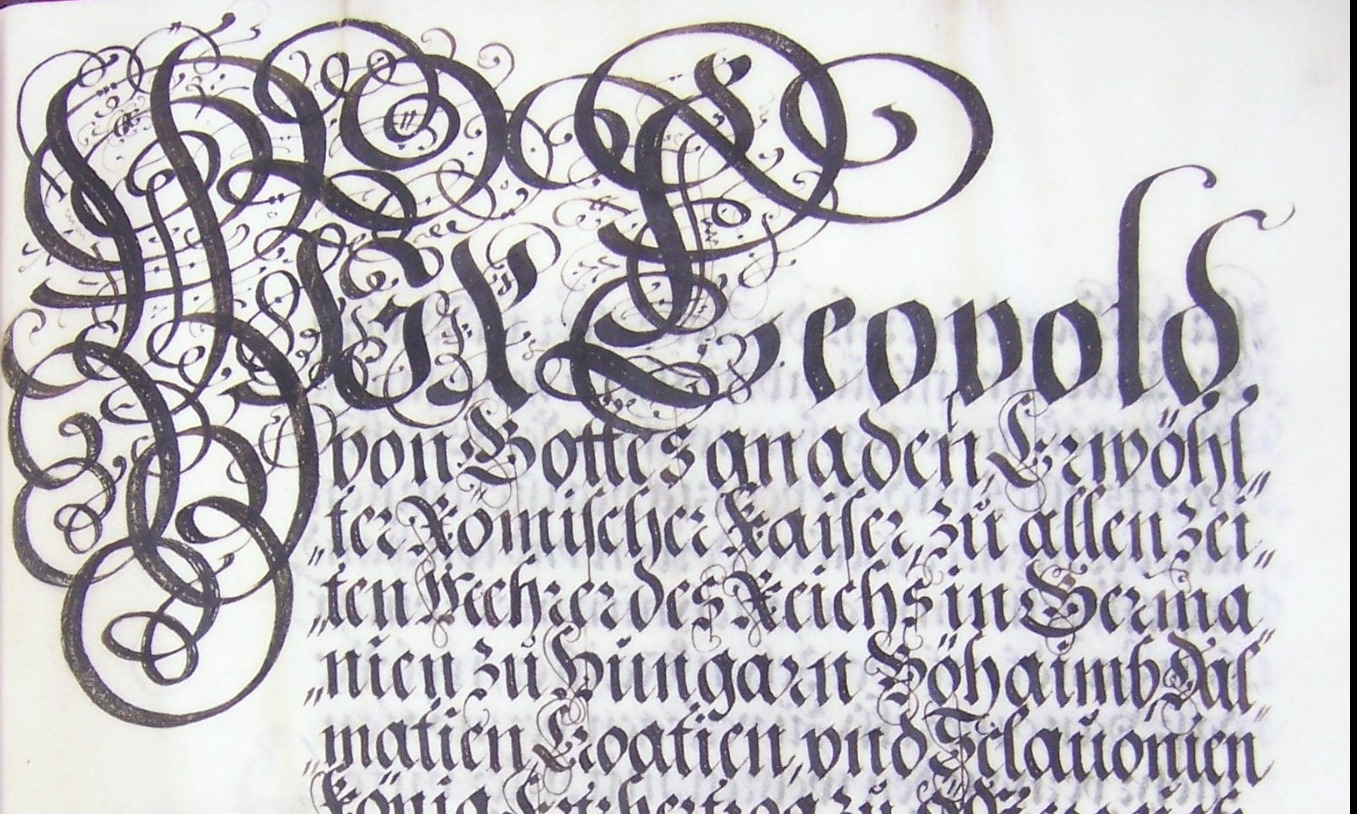 WIR Leopold.
von Gottes gnaden, Erwöhl„
„ter Römischer Kaiser, zu allen zei„
„ten Mehrer des Reichs in Germa„
„nien zu Hungarn Böhaimb, Dal„
„matien Croatien, vnd Sclauonien
König Ertzhertzog zu